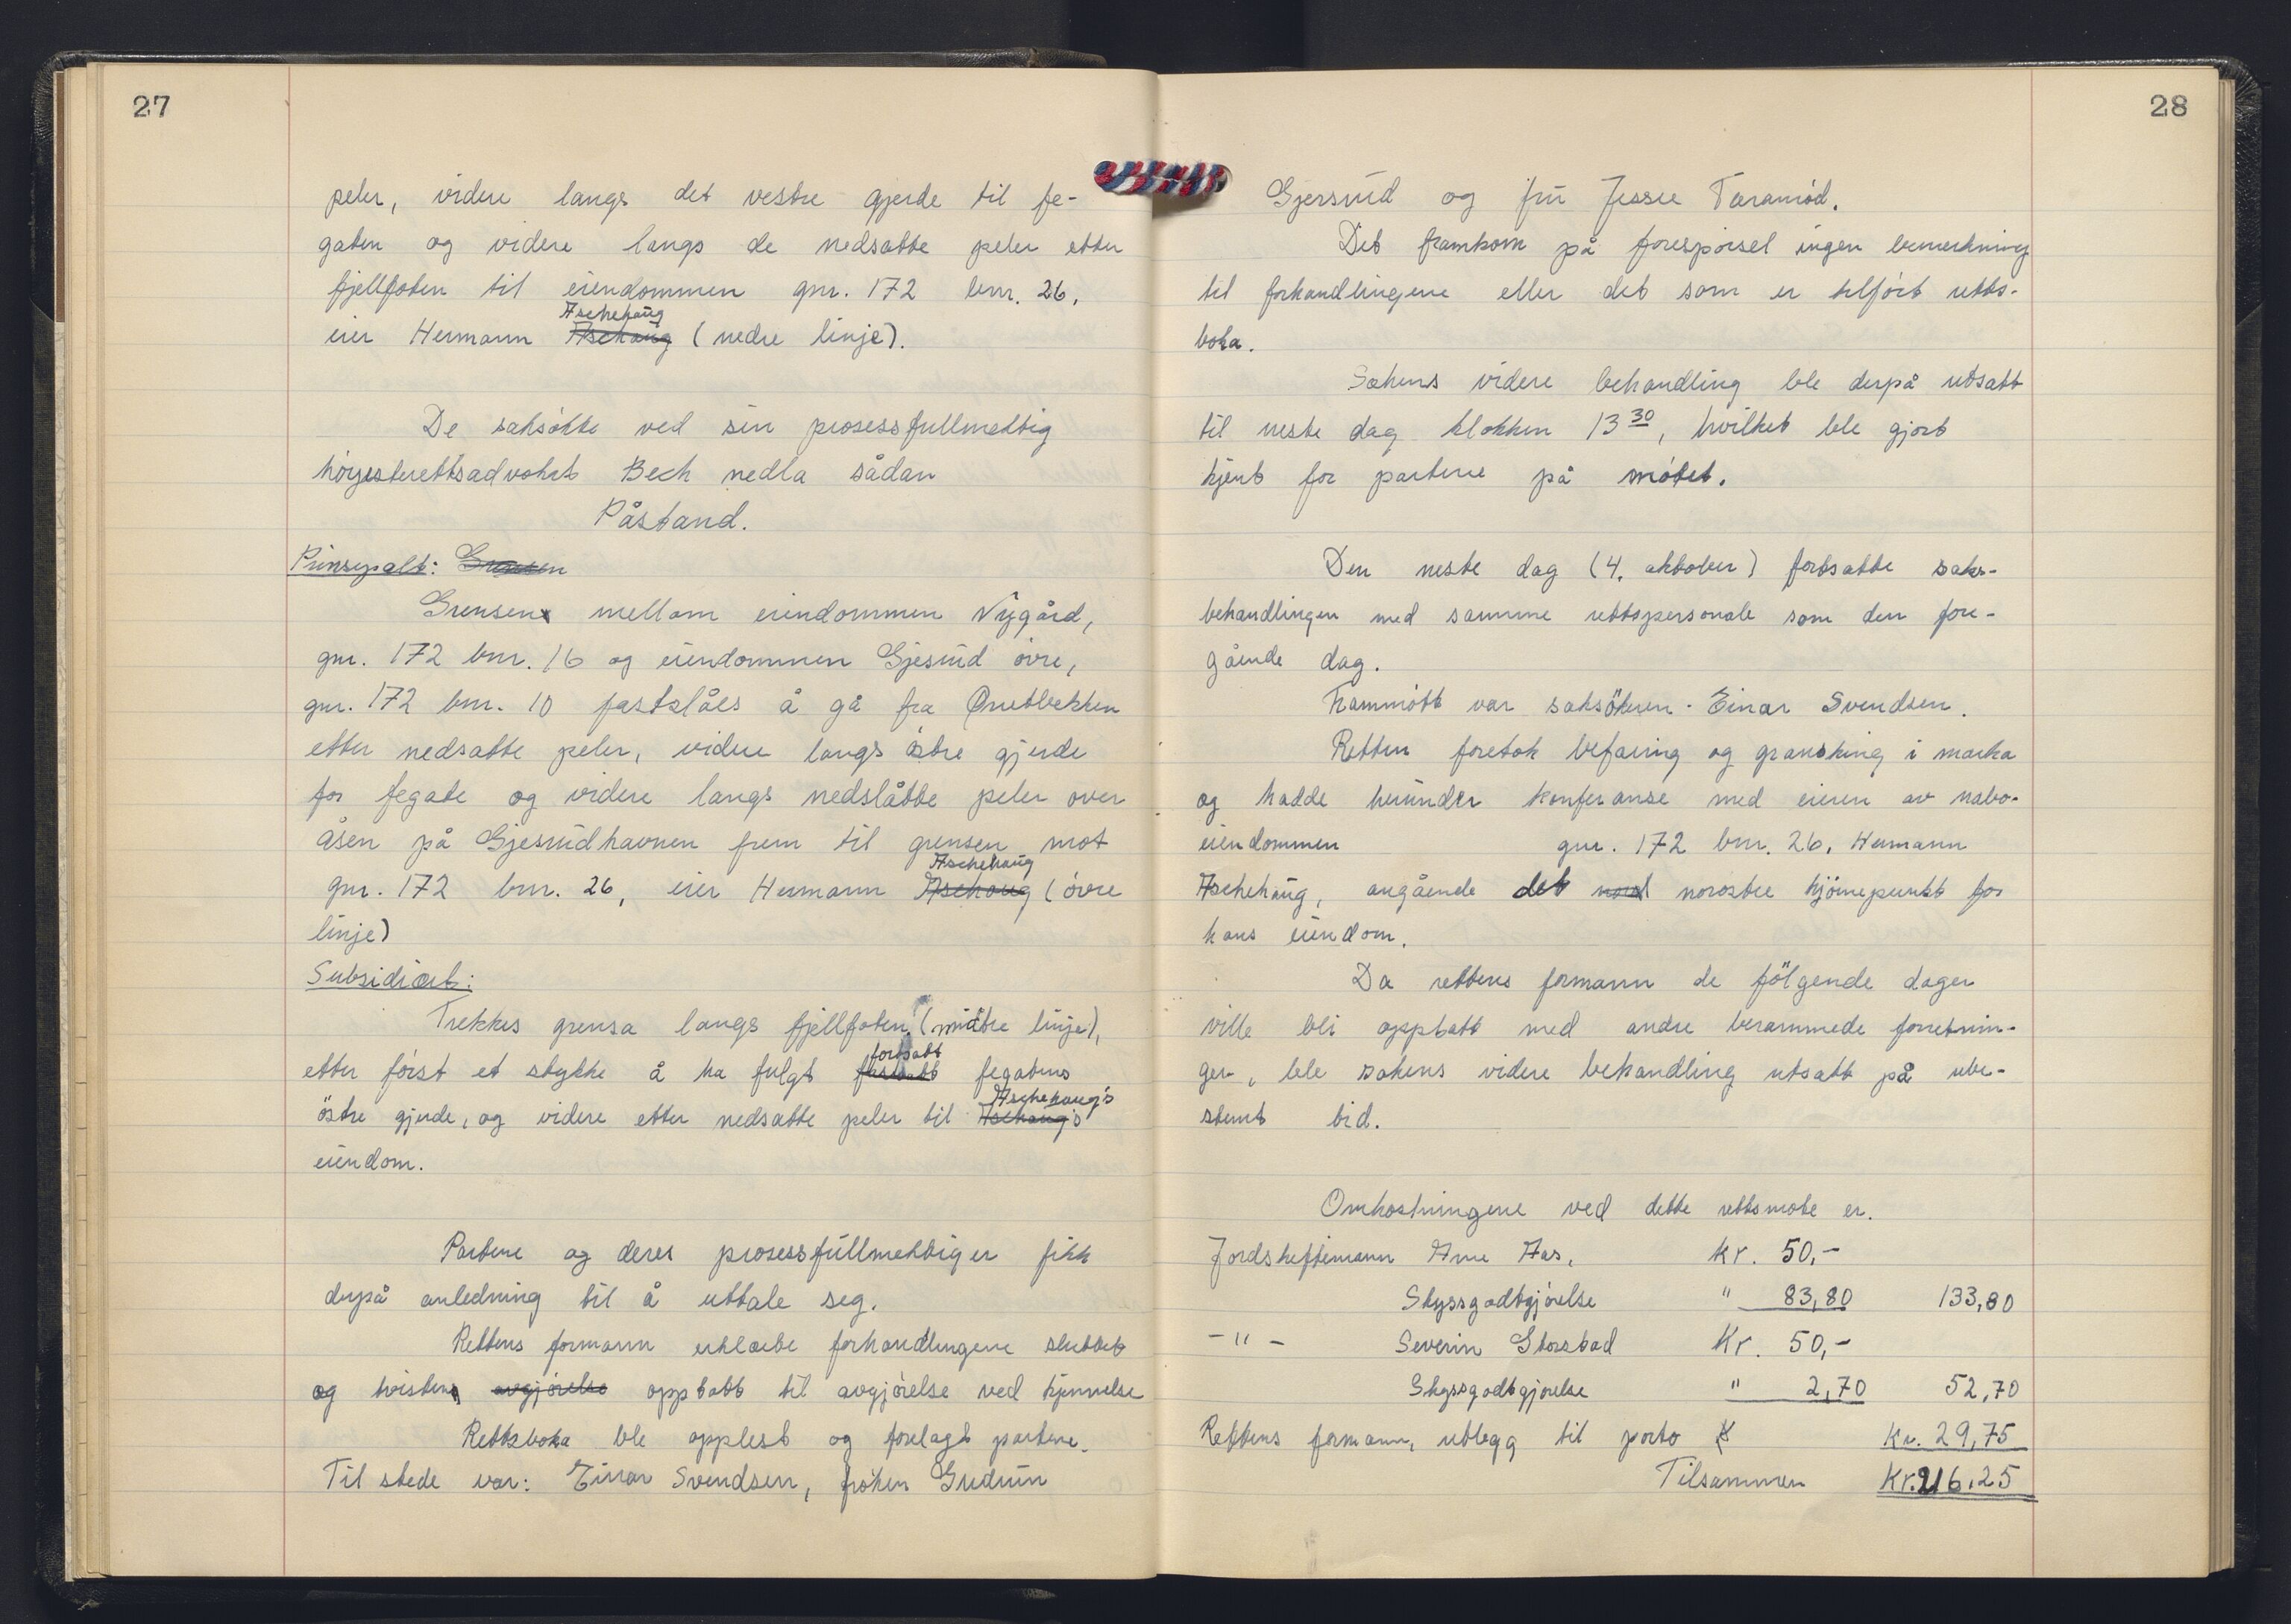 27
peler, videre langs det vestre gjerde til fe-
gaten og videre langs de nedsatte peler etter
fjellfoten til eiendommen gnr. 172 bnr. 26,
Aschehaug
eier Hermann Aschaug (nedre linje).
De saksökte ved sin prosessfullmektig
höyesterettsadvokat Bech nedla sådan
Påstand.
Prinsipalt: Grensen
Grensen mellom eiendommen Nygård,
gnr. 172 bnr. 16 og eiendommen Gjesrud övre,
gnr. 172 bnr. 10 fastslåes å gå fra Ørretbekken
etter nedsatte peler, videre langs östre gjerde
for fegate og videre langs nedslåtte peler over
åsen på Gjesrudhavnen frem til grensen mot
Aschehaug
gnr. 172 bnr. 26, eier Hermann Aschaug (övre
linje)
Subsidiært:
Trekkes grensa langs fjellfoten (midtre linje),
fortsatt
etter först et stykke å ha fulgt fastsatt fegatens
Aschehaug's
östre gjerde, og videre etter nedsatte peler til Aschaug's
eiendom.
Partene og deres prosessfullmektiger fikk
derpå anledning til å uttale seg.
Rettens formann erklærte forhandlingene sluttet
og tvisten avgjörelse opptatt til avgjörelse ved kjennelse
Rettsboka ble opplest og forelagt partene.
Til stede var: Einar Svendsen, fröken Gudrun
28
Gjersrud og fru Jessie Taramöd.
Det framkom på forespörsel ingen bemerkning
til forhandlingene eller det som er tilfört retts-
boka.
Sakens videre behandling ble derpå utsatt
til neste dag klokken 13 30, hvilket ble gjort
kjent for partene på mötet.
Den neste dag (4. oktober) fortsatte saks-
behandlingen med samme rettspersonale som den fore-
gående dag.
Frammött var saksökeren Einar Svendsen.
Retten foretok befaring og gransking i marka
og hadde herunder konferanse med eieren av nabo-
eiendommen gnr. 172 bnr. 26, Hermann
Aschehaug, angående det nord norostre hjörnepunkt for
hans eiendom.
Da rettens formann de fölgende dager
ville bli opptatt med andre berammede forretnin-
ger, ble sakens videre behandling utsatt på ube-
stemt tid.
Omkostningene ved dette rettsmöte er.
Jordskiftemann Arne Aas, kr. 50,-
Skyssgodtgjörelse " 83,80 133,80
- " - Severin Storstad Kr. 50,-
Skyssgodtgjörelse " 2,70 52,70
Rettens formann, utlegg til porto Kr. 29,75
Tilsammen Kr. 216,25